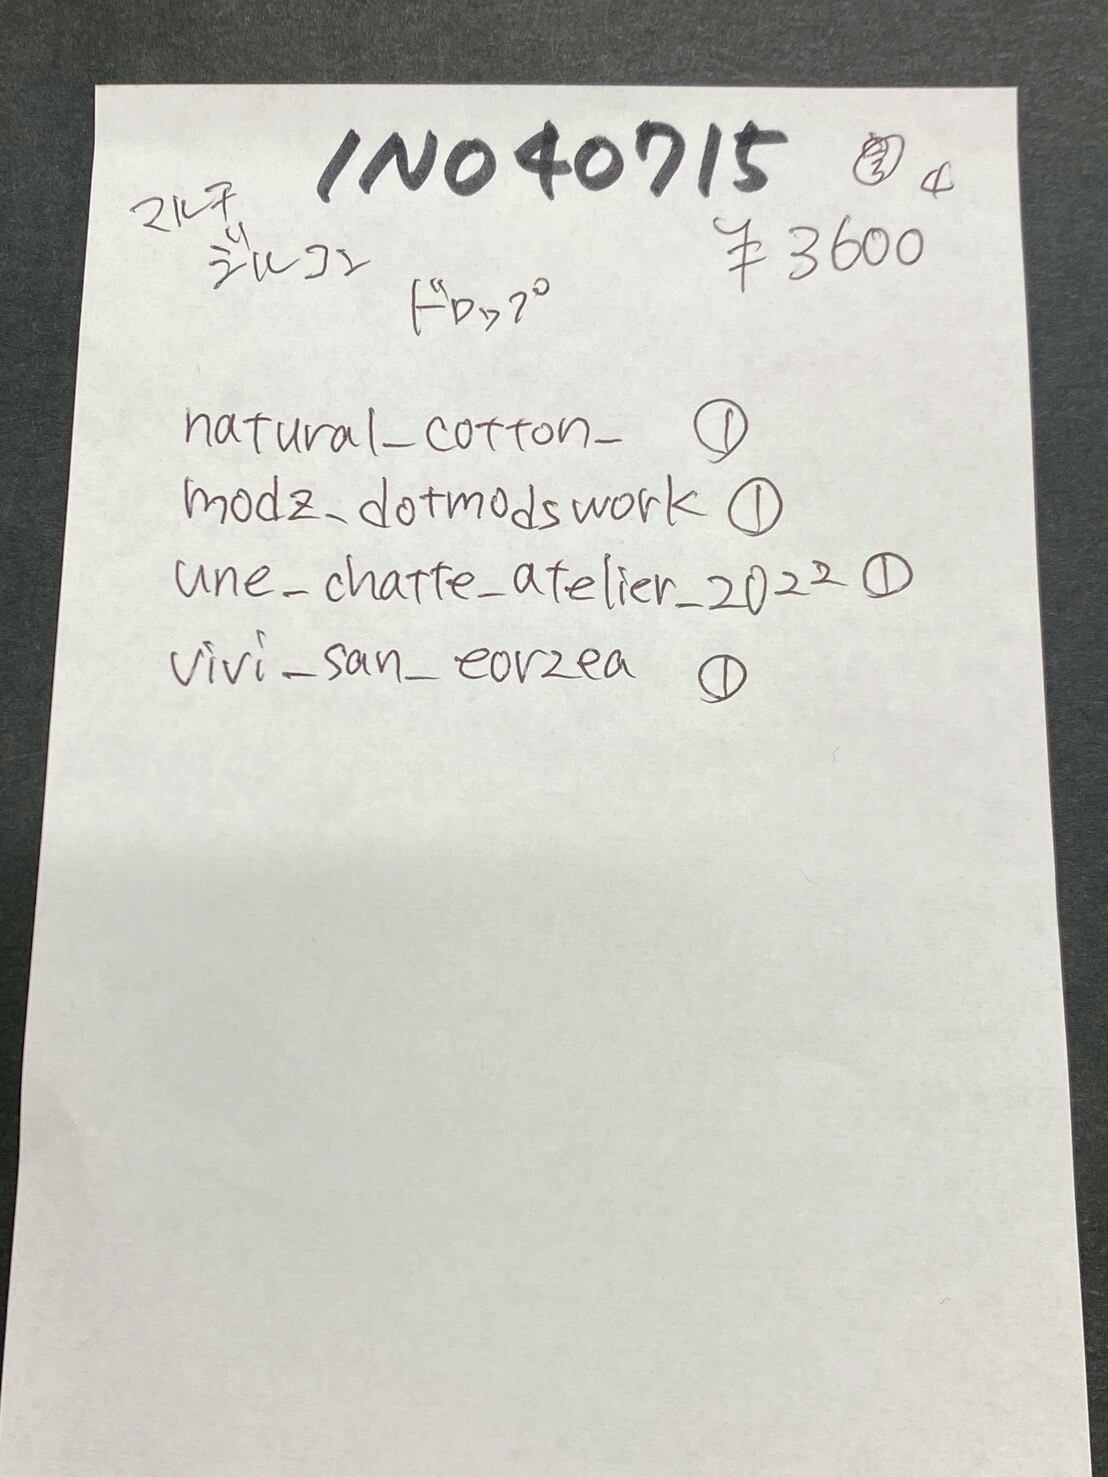 INO40715 4
マルチ
ジルコン
¥3600
ドロップ
natural_cotton_ ①
modz_dotmodswork ①
une_chatte_atelier_2022 ①
vivi_san_eorzea ①